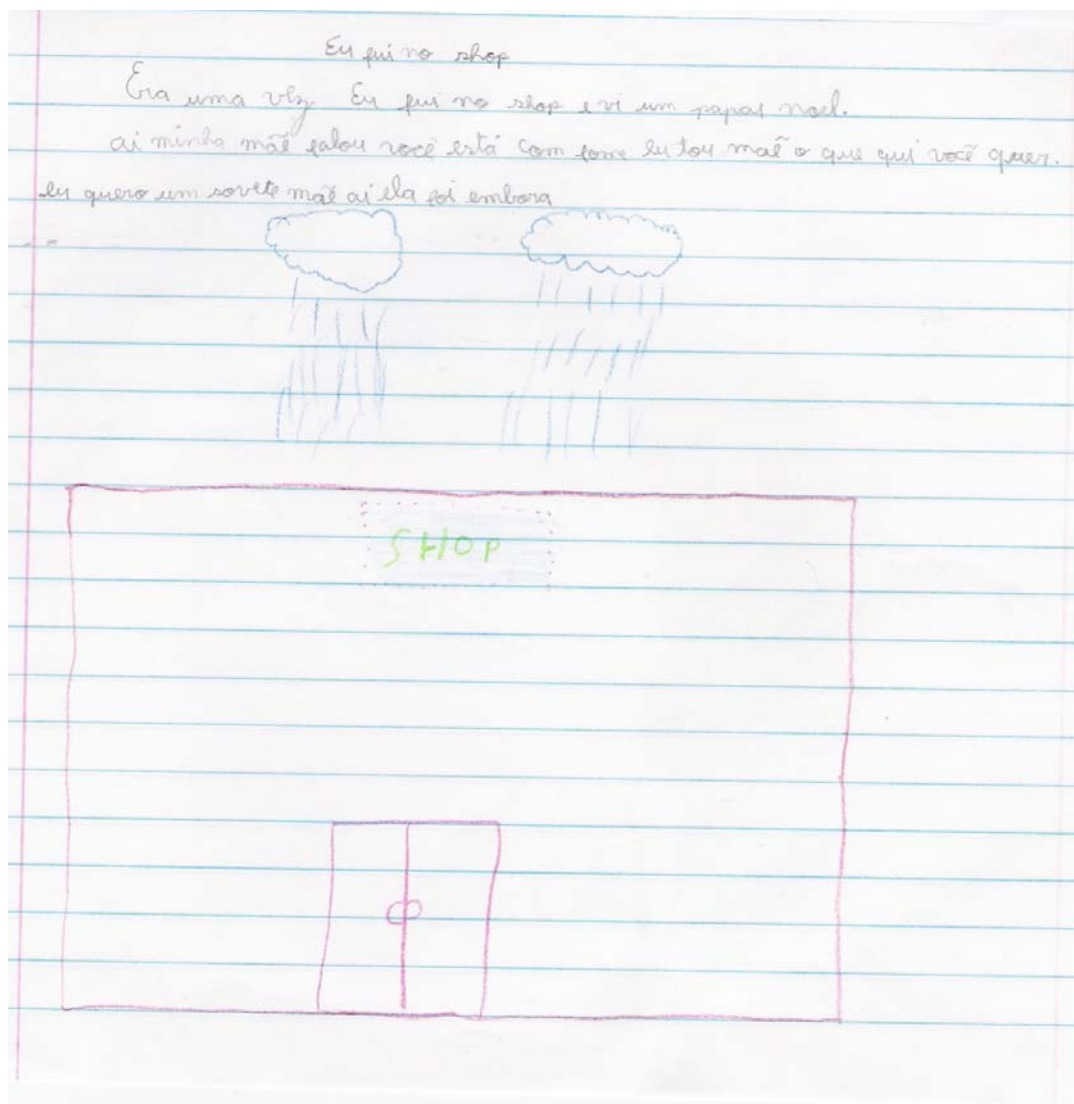 Eu fui no shop
Era uma vez Eu fui no shop e vi um papai noel.
ai minha mãe falou você está com fome eu tou mãe o que qui você quer.
eu quero um sovete mãe ai ela foi embora
SHOP